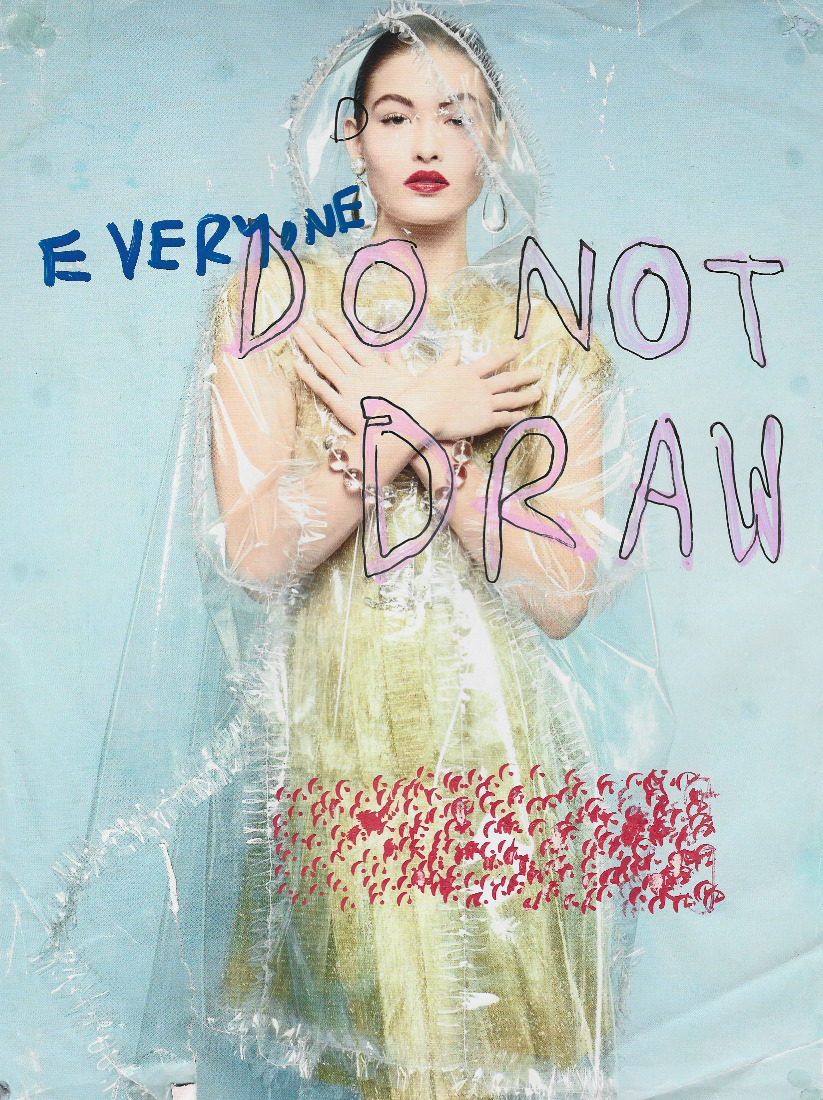 D
EVERYONE
DO NOT
DRAW